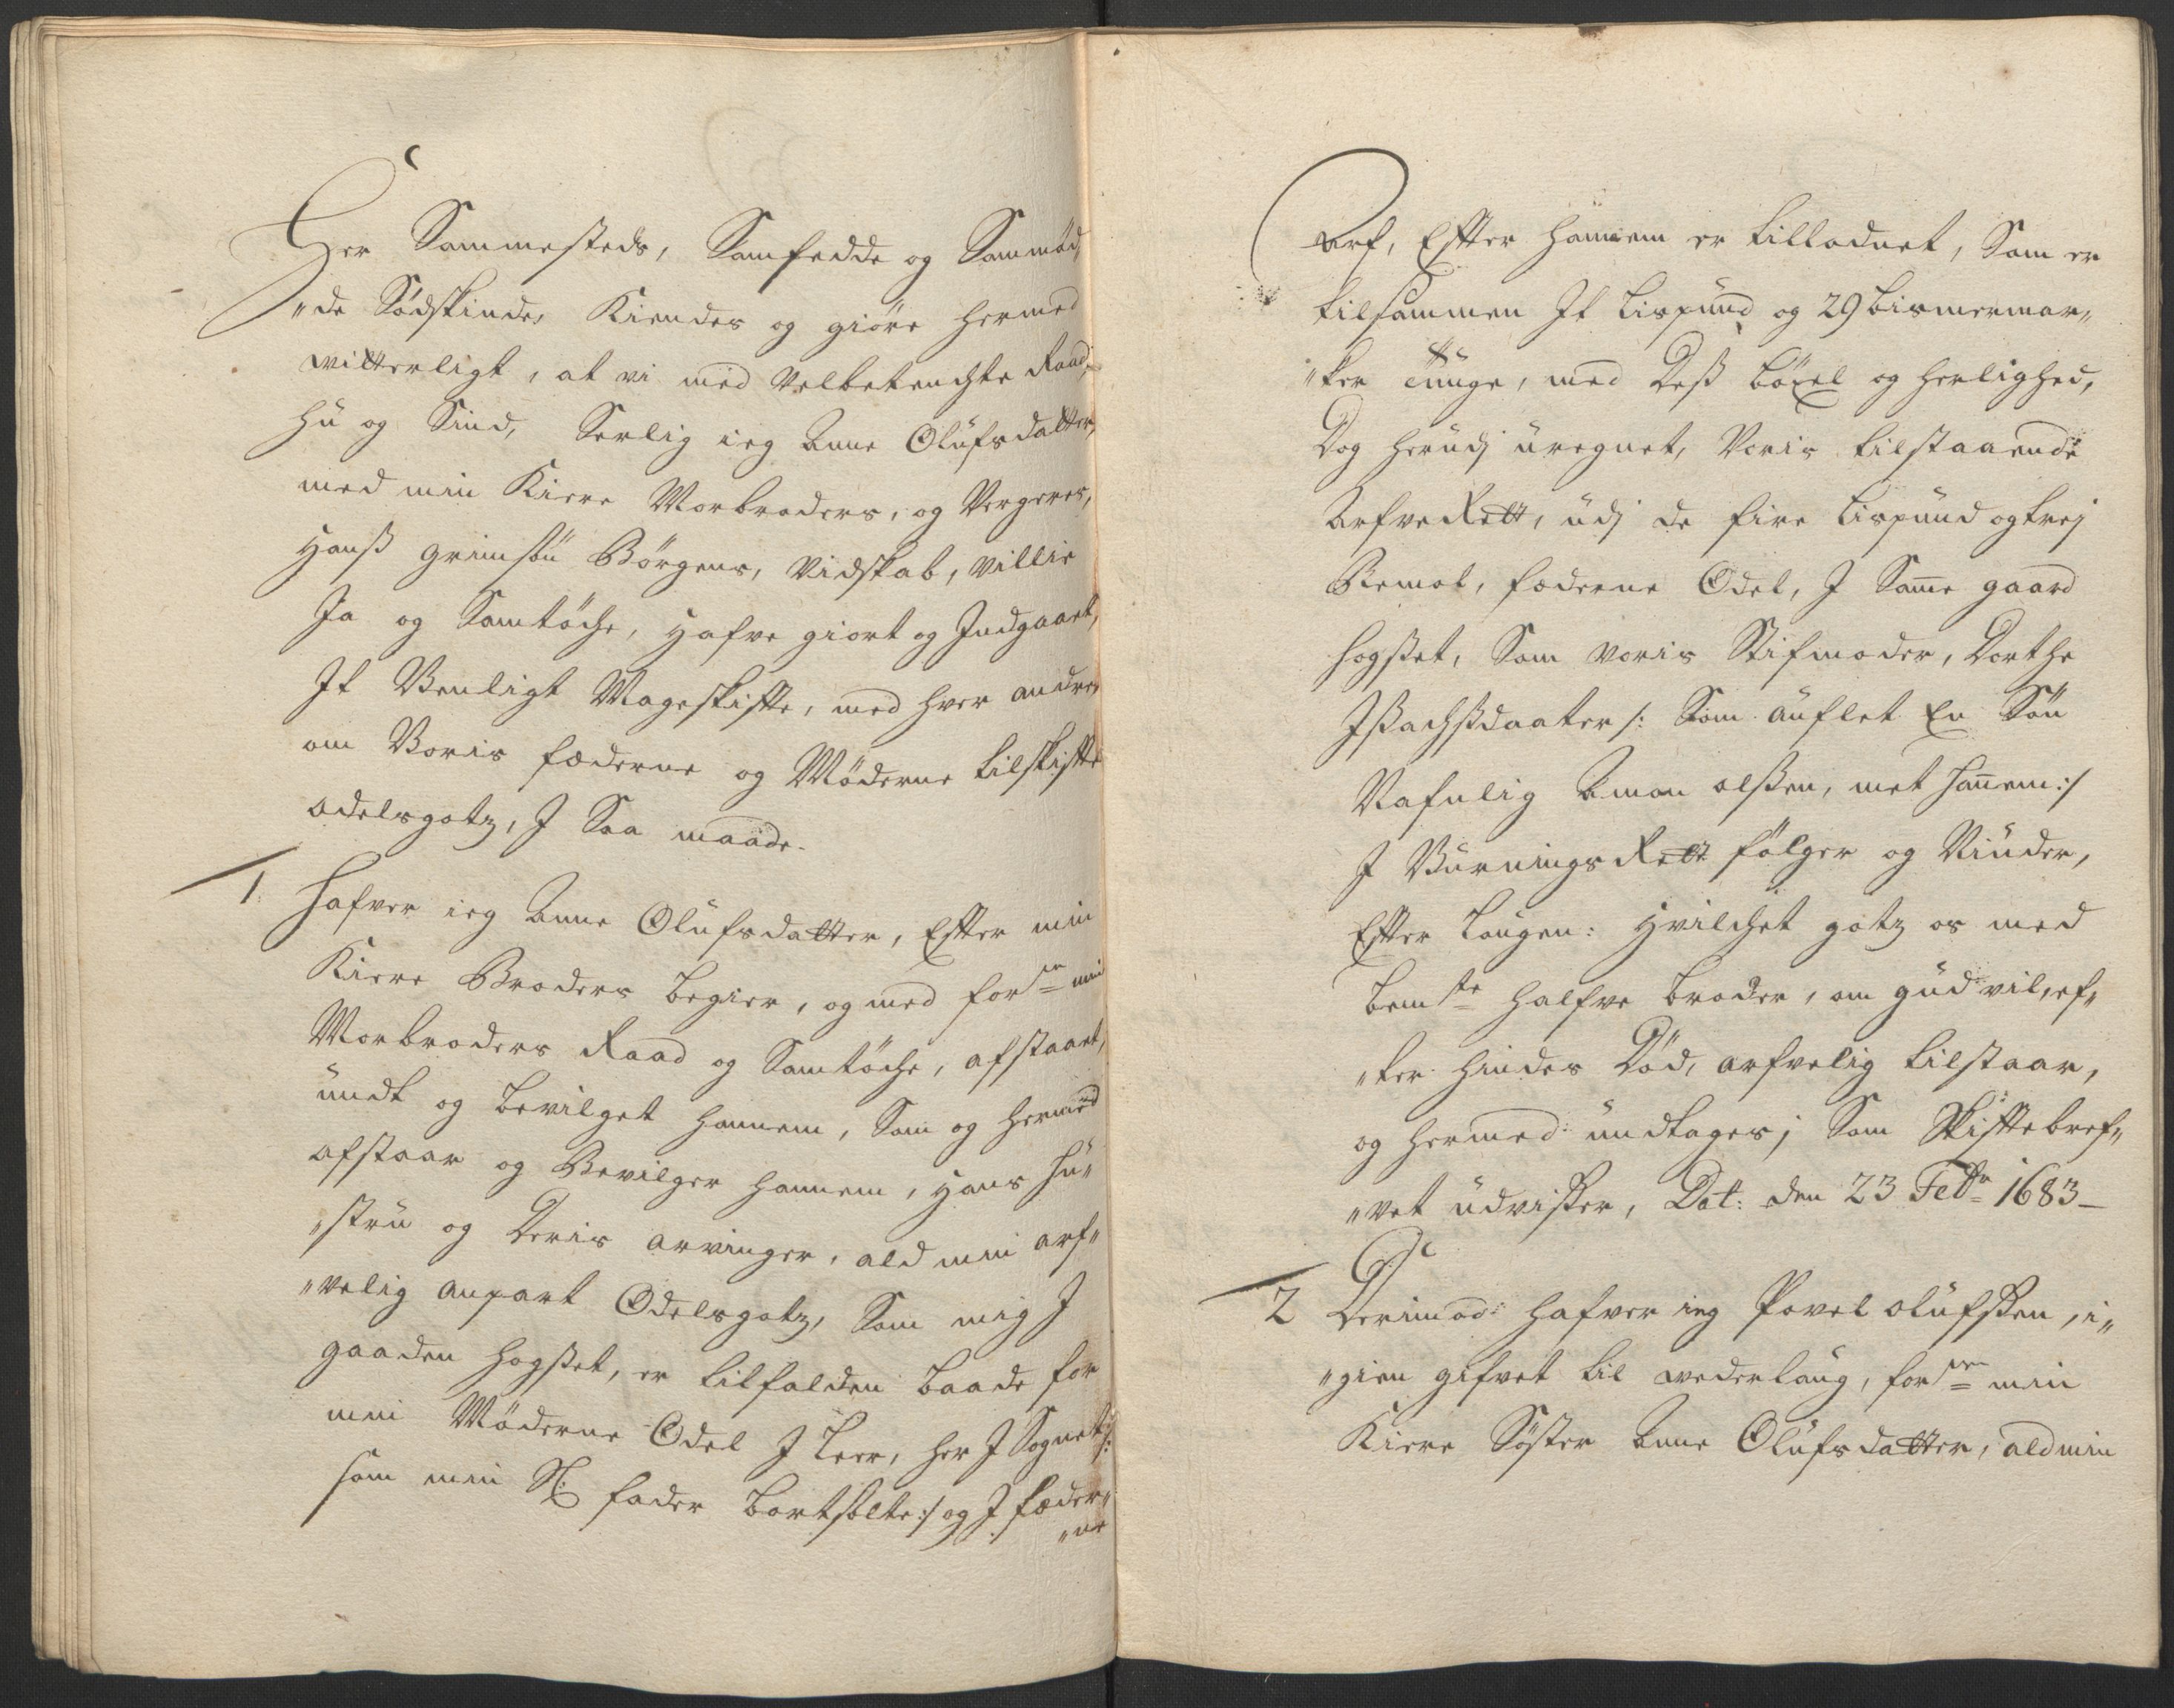 Her Sammesteds, Samfedde og Sammød„
„de Sødskinder Kiendes og giøre hermed
witterligt, at vi med Velbetenchte Raad,
Hu og Sind, Serlig ieg Anne Olüfsdatter,
med min Kiere Morbroders, og Vergeres,
Hanß Grimsøn Børgens, Vidskab, Villie
Ja og Samtøche, Hafve giort og Indgaaet,
It Venligt Mageskifte, med hver andre
om Voris fæderne og Møderne tilskifte
odelsgotz, I Saa maade.
1. Hafver ieg Anne Olüfsdatter, Efter min
Kiere Broders begier, og med forne min
Morbroders Raad og Samtøche, afstaaet,
undt og bevilget hannem, Som og hermed
afstaar og Bevilger hannem, Hans Hu„
„stru og Deris arvinger, ald min arf„
„velig anpart Odelsgotz, Som mig I
gaarden Hogset, er tilfalden baade for
min Møderne Odel I Leer, her I Sognet /:
som min Sl: fader bortsolte :/ og I fæder„
„ne
Arf, Efter hannem er tilladnet, Som er
tilsammen It Lispund og 29 bismermar„
„ker Tünge, med Deß böxel og herlighed,
Dog herudj üregnet, Voris tilstaaende
Arfve Rett, üdj de fire Lispund og trej
Bismol, fæderne Odel, I Same gaard
Hogset, Som voris Stifmoder, Dorthe
Ißachsdaater /: Som aüflet En Søn
Nafnlig Amon olßen, met Hannem :/
I Vurnings Rett følger og Niuder,
Efter Laugen: Hvilchet gotz os med
bemte halfve broder, om gud vil, ef„
„ter hindes Død, arfvelig tilstaar,
og hermed undtages; Som Skiftebref„
„vet üdvißer, Dat: den 23 Febr 1683 –
2 Derimod hafver ieg Povel olüfßen, i„
„gien gifvet til wederlaug, forne min
Kiere Søster Anne Olüfsdatter, ald min